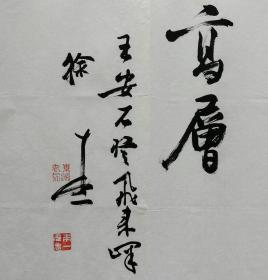 高層
王安石登飛来峰
徐